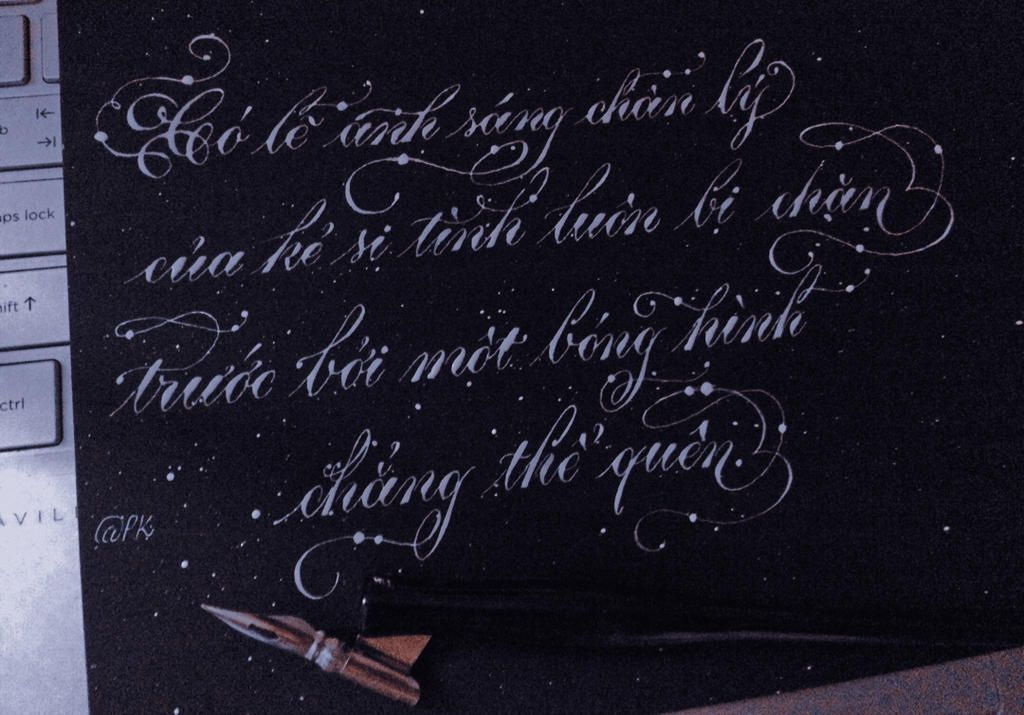 Có lẽ ánh sáng chân lý
của kẻ si tình luôn bị chặn
trước bởi một bóng hình
chẳng thể quên.
@PK
caps lock
shift ↑
ctrl